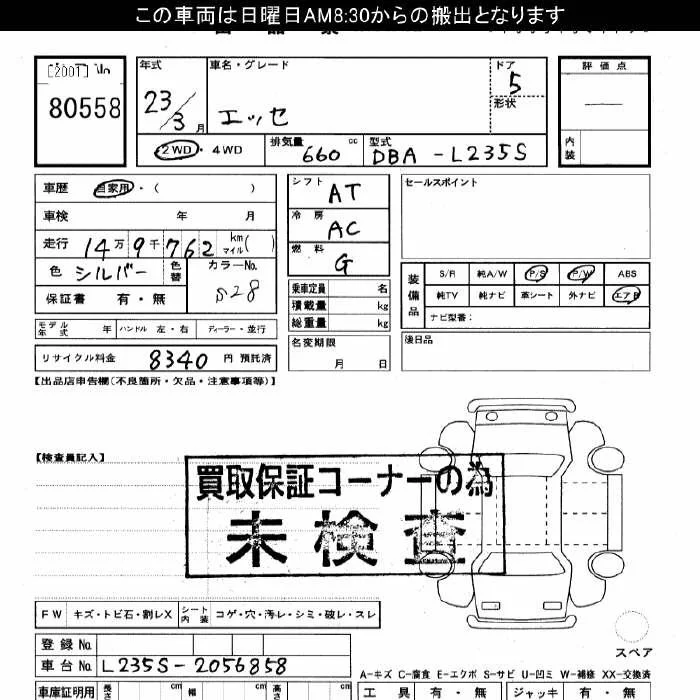 この車両は日曜日AM8:30からの搬出となります
[2001] No
80558
年式 23/3月
車名・グレード エッセ
ドア 5
形状
評価点 —
内装
2WD・4WD
排気量 660 cc
型式 DBA-L235S
車歴 自家用・( )
車検 年 月
走行 14万9千762 km マイル( )
色 シルバー 色替
カラーNo. S28
保証書 有・無
モデル年式 年 ハンドル 左・右 ディーラー・並行
リサイクル料金 8340 円 預託済
シフト AT
冷房 AC
燃料 G
乗車定員 名
積載量 kg
総重量 kg
名変期限 月 日
セールスポイント
装備品
S/R 純A/W P/S P/W ABS
純TV 純ナビ 革シート 外ナビ エアB
ナビ型番:
後日品
【出品店申告欄(不良箇所・欠品・注意事項等)】
【検査員記入】
買取保証コーナーの為
未検査
FW キズ・トビ石・割レX シート内装 コゲ・穴・汚レ・シミ・破レ・スレ
登録No.
車台No. L235S-2056858
スペア
A-キズ C-腐食 E-エクボ S-サビ U-凹ミ W-補修 XX-交換済
車庫証明用 長さ cm 幅 cm 高さ cm
工具 有・無 ジャッキ 有・無